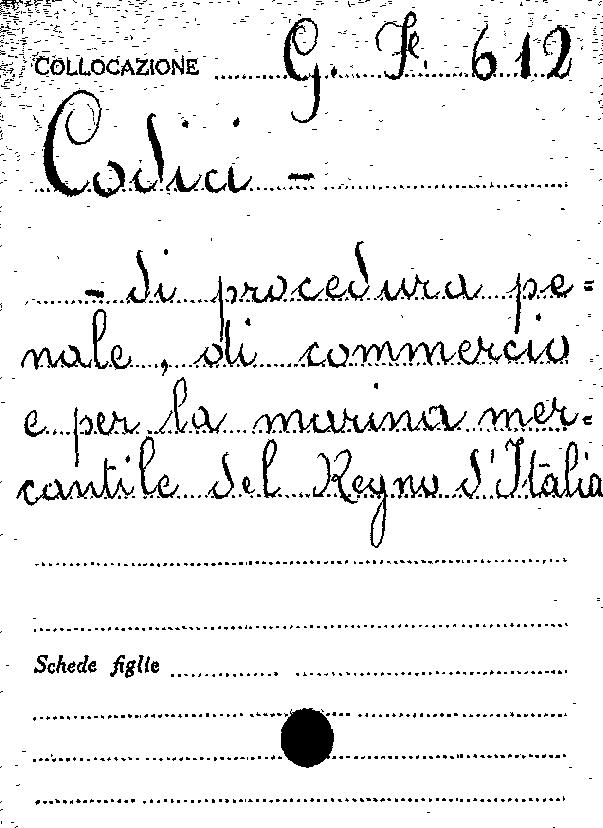 COLLOCAZIONE G. Fe. 612
Codici -
- di procedura pe=
nale, di commercio
e per la marina mer=
cantile del Regno d'Italia
Schede figlie